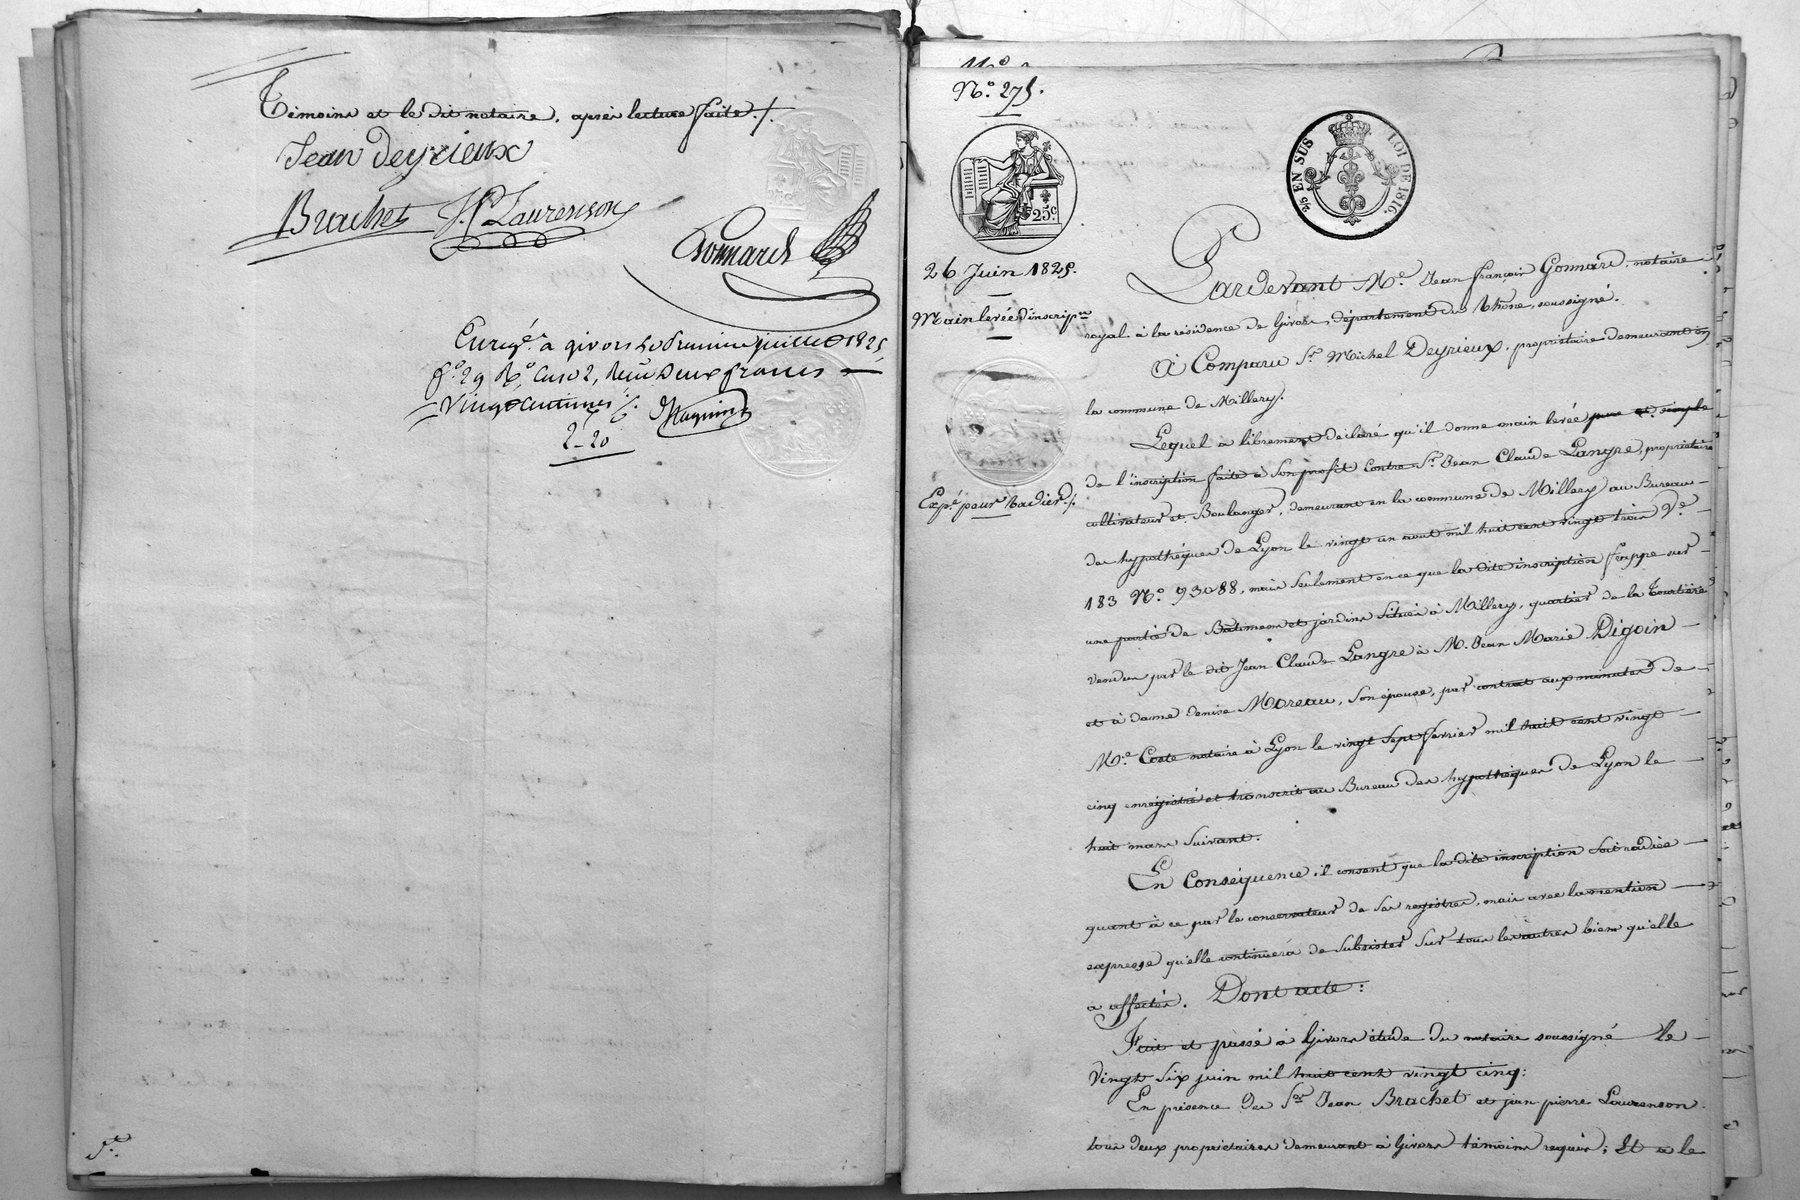 Témoins et le dit notaire, après lecture faite ./.
Jean Deyrieux
Brachet J. P. Laurenson
Gonnard
Enregé. a givors le Premier juillet 1825
fo. 29 Ro. Case 2, Reçu Deux francs
Vingt centimes ./.
2-20
No. 275.
25c
2/5 EN SUS LOI DE 1816.
26 Juin 1825.
Main levée d'inscripon
Expé. pour Radier ./.
Pardevant Me. Jean françois Gonnard, notaire
royal à la résidence de Givors, département du Rhône, soussigné.
A Comparu Sr. Michel Deyrieux, propriétaire demeurant en
la commune de Millery.
Lequel a librement déclaré qu'il donne main levée pure et simple
de l'inscription faite à son profit contre Sr. Jean Claude Langre, propriétaire
cultivateur et Boulanger, demeurant en la commune de Millery au Bureau
des hypothèques de Lyon le vingt un aout mil huit cent vingt trois Ve.
183 No. 93088, mais seulement en ce que la dite inscription frappe sur
une partie de Bâtimens et jardins situés à Millery, quartier de la Tourtière
vendus par le dit Jean Claude Langre à M. Jean Marie Digoin
et à dame Denise Moreau, son épouse, par contrat aux minutes de
Me. Coste notaire à Lyon le vingt sept fevrier mil huit cent vingt
cinq enregistré et transcrit au Bureau des hypothèques de Lyon le
huit mars suivant.
En Conséquence, il consent que la dite inscription soit radiée
quant à ce par le conservateur de ses registres, mais avec la mention
expresse qu'elle continuera de subsister sur tous les autres biens qu'elle
a affectés. Dont acte :
Fait et passé à Givors étude du notaire soussigné le
vingt six juin mil huit cent vingt cinq :
En présence des Srs Jean Brachet et jean pierre Laurenson
tous deux propriétaires demeurant à Givors témoins requis ; Et a le